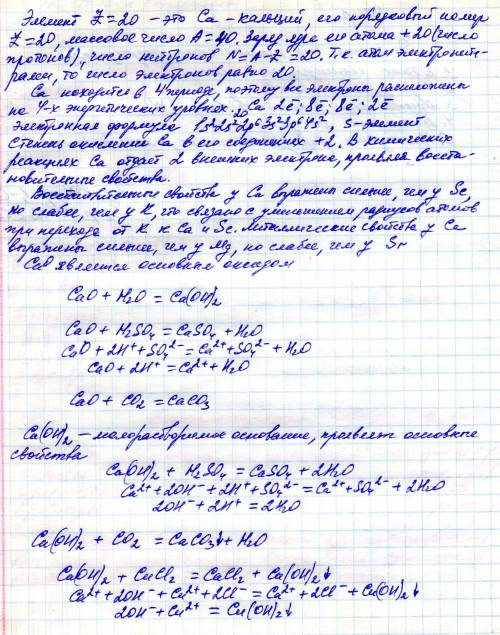 Элемент Z=20 - это Ca - кальций, его порядковый номер
Z=20, массовое число A=40, заряд ядра его атома +20 (число
протонов), число нейтронов N=A-Z=20. Т.к. атом электроней-
трален, то число электронов равно 20.
Ca находится в 4 периоде, поэтому все электроны расположены
на 4-х энергетических уровнях. ₂₀Ca 2ē; 8ē; 8ē; 2ē
Электронная формула 1s²2s²2p⁶3s²3p⁶4s², s-элемент
Степень окисления Ca в его соединениях +2. В химических
реакциях Ca отдает 2 внешних электрона, проявляя восста-
новительные свойства.
Восстановительные свойства у Ca выражены сильнее, чем у Sc,
но слабее, чем у K, что связано с уменьшением радиусов атомов
при переходе от K к Ca и Sc. Металлические свойства у Ca
выражены сильнее, чем у Mg, но слабее, чем у Sr
CaO является основным оксидом
CaO + H₂O = Ca(OH)₂
CaO + H₂SO₄ = CaSO₄ + H₂O
CaO + 2H⁺ + SO₄²⁻ = Ca²⁺ + SO₄²⁻ + H₂O
CaO + 2H⁺ = Ca²⁺ + H₂O
CaO + CO₂ = CaCO₃
Ca(OH)₂ - малорастворимое основание, проявляет основные
свойства
Ca(OH)₂ + H₂SO₄ = CaSO₄ + 2H₂O
Ca²⁺ + 2OH⁻ + 2H⁺ + SO₄²⁻ = Ca²⁺ + SO₄²⁻ + 2H₂O
2OH⁻ + 2H⁺ = 2H₂O
Ca(OH)₂ + CO₂ = CaCO₃↓ + H₂O
Ca(OH)₂ + CuCl₂ = CaCl₂ + Cu(OH)₂↓
Ca²⁺ + 2OH⁻ + Cu²⁺ + 2Cl⁻ = Ca²⁺ + 2Cl⁻ + Cu(OH)₂↓
2OH⁻ + Cu²⁺ = Cu(OH)₂↓